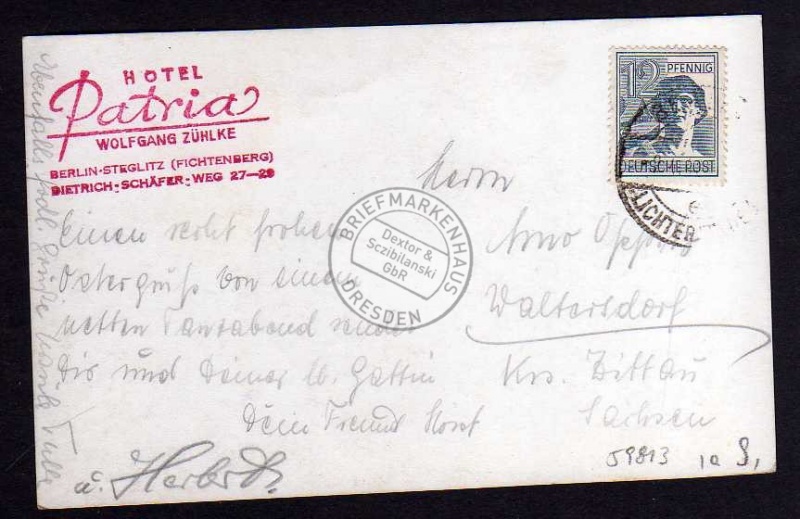 HOTEL
Patria
WOLFGANG ZÜHLKE
BERLIN-STEGLITZ (FICHTENBERG)
DIETRICH-SCHÄFER-WEG 27-29
12 PFENNIG
DEUTSCHE POST
LICHTER
Einen recht frohen
Ostergruß von einem
netten Tanzabend sendet
Dir und Deiner lb. Gattin
Dein Freund Horst
u. Herbert
Ebenfalls Grüße
Herrn
Arno
Waltersdorf
Krs. Zittau
Sachsen
59813 1a S,
BRIEFMARKENHAUS
Dextor &
Sczibilanski
GbR
DRESDEN